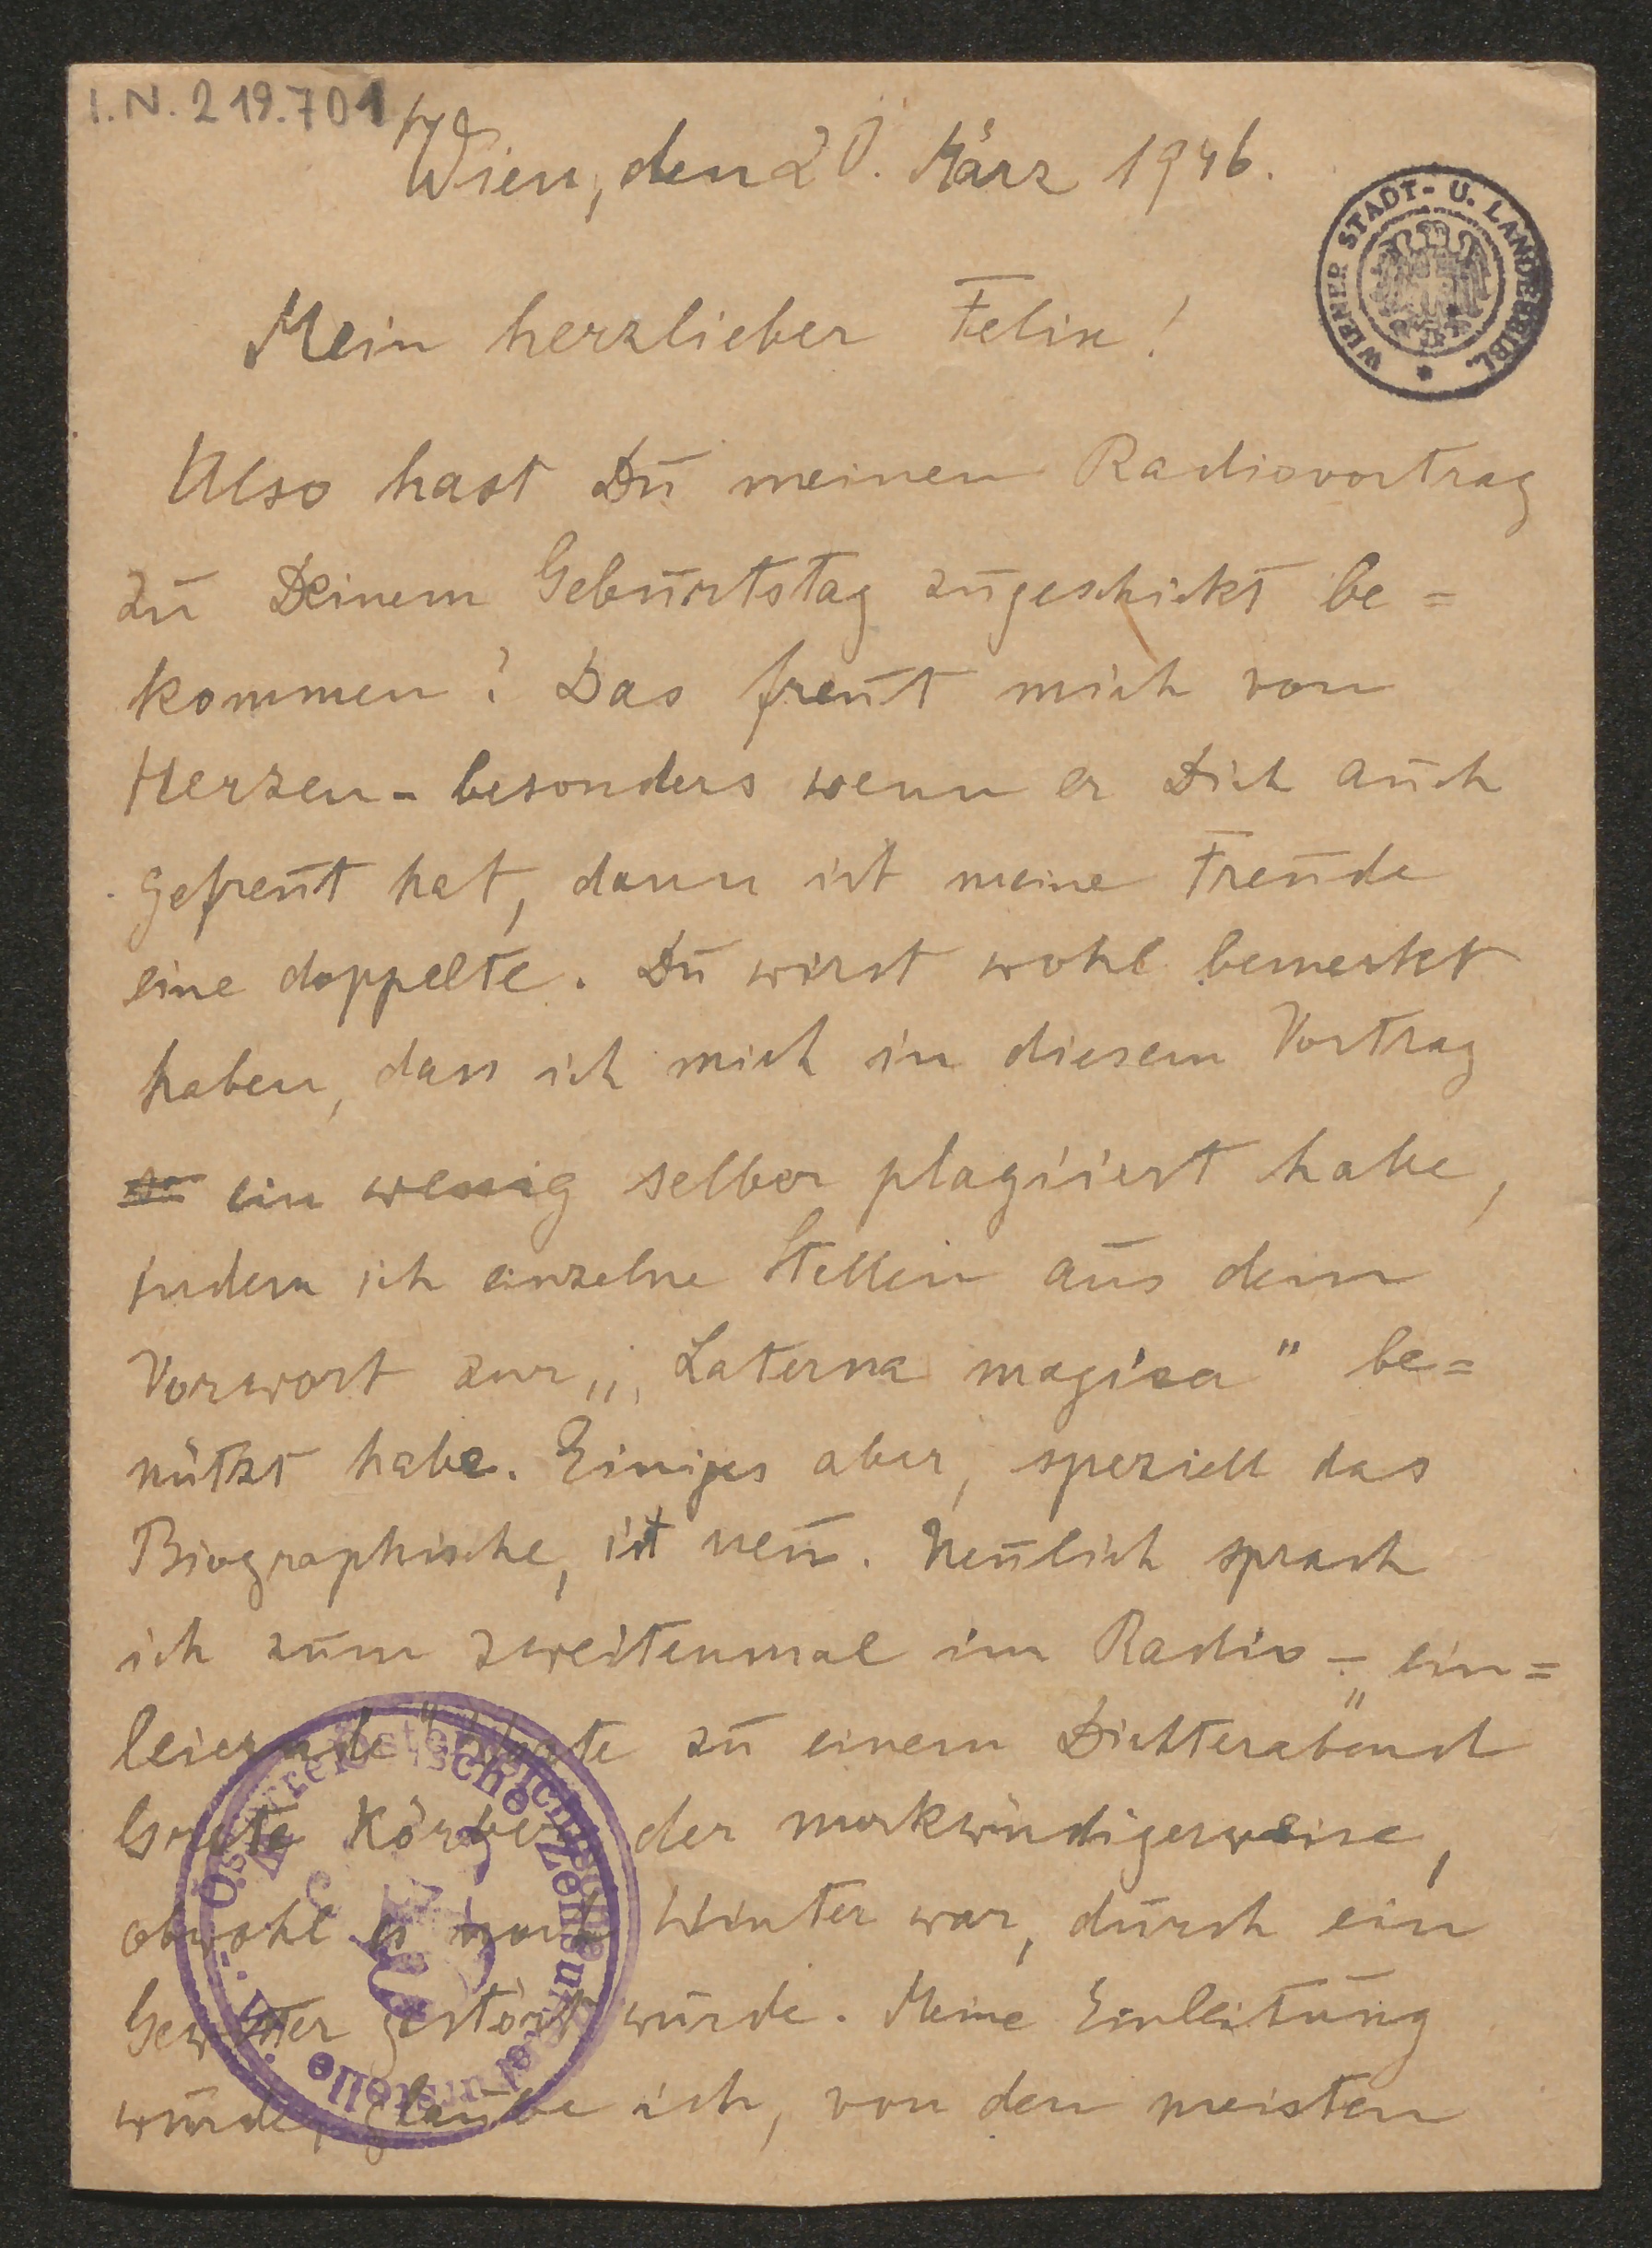 I.N. 219.701
Wien, den 20. März 1946.
WIENER STADT- U. LANDESBIBL.
Mein herzlieber Felix!
Also hast Du meinen Radiovortrag
zu Deinem Geburtstag zugeschickt be=
kommen? Das freut mich von
Herzen - besonders wenn er Dich auch
gefreut hat, dann ist meine Freude
eine doppelte. Du wirst wohl bemerkt
haben, dass ich mich in diesem Vortrag
ein wenig selber plagiiert habe,
indem ich einzelne Stellen aus dem
Vorwort zur „Laterna magica" be=
nützt habe. Einiges aber, speziell das
Biographische, ist neu. Neulich sprach
ich zum zweitenmal im Radio – ein=
leiernde Worte zu einem „Dichterabend"
Grete Körber, der merkwürdigerweise,
obwohl es noch Winter war, durch ein
Gewitter gestört wurde. Meine Einleitung
wurde, glaube ich, von den meisten
Österreichische Zensurstelle W.